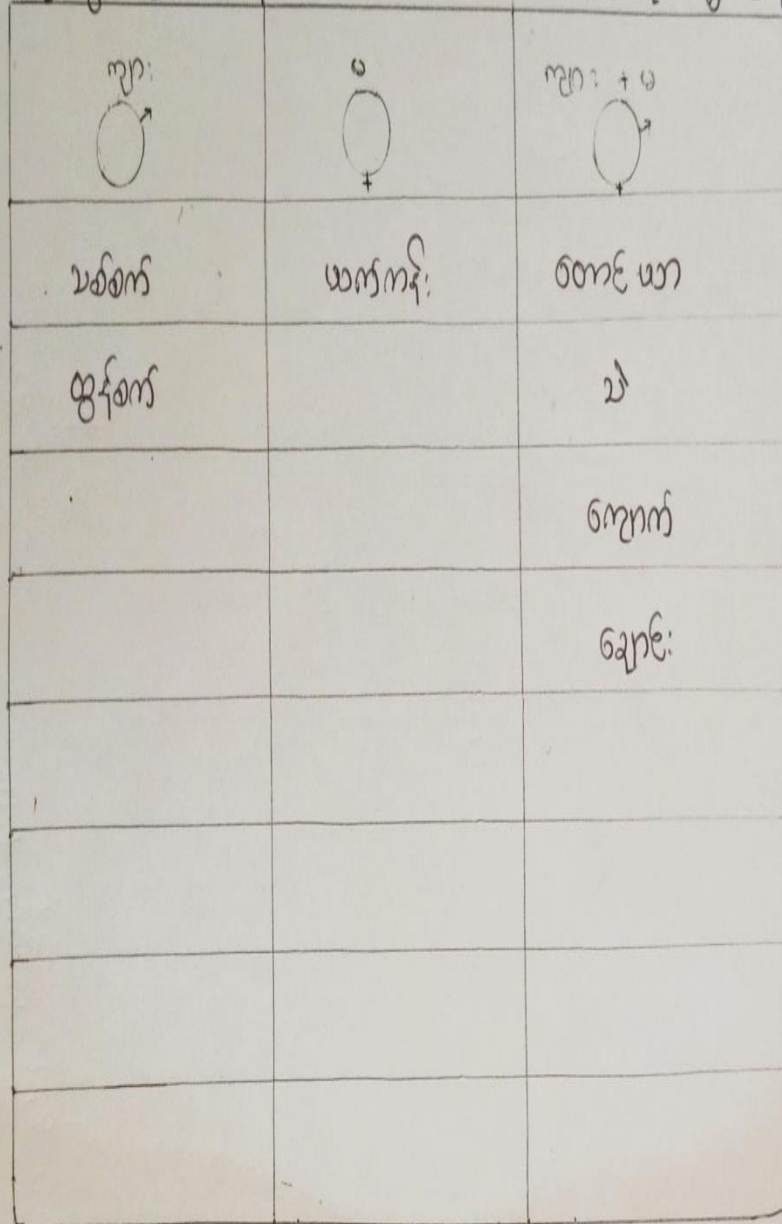 ကျား မ ကျား + မ
သစ်စက် ယက်ကန်း တောင်ယာ
ထွန်စက် သဲ
ကျောက်
ချောင်း